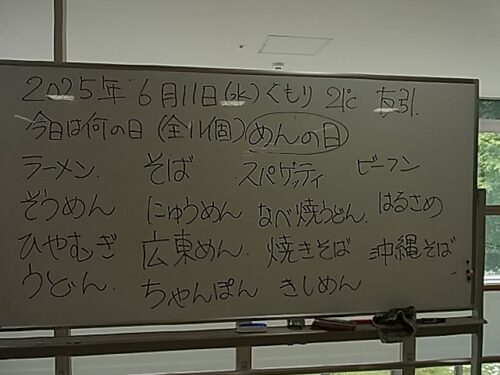 2025年 6月11日(水) くもり 21℃ 友引.
今日は何の日 (全11個) めんの日
ラーメン. そば スパゲッティ ビーフン
そうめん にゅうめん なべ焼うどん. はるさめ
ひやむぎ 広東めん. 焼きそば 沖縄そば
うどん. ちゃんぽん きしめん